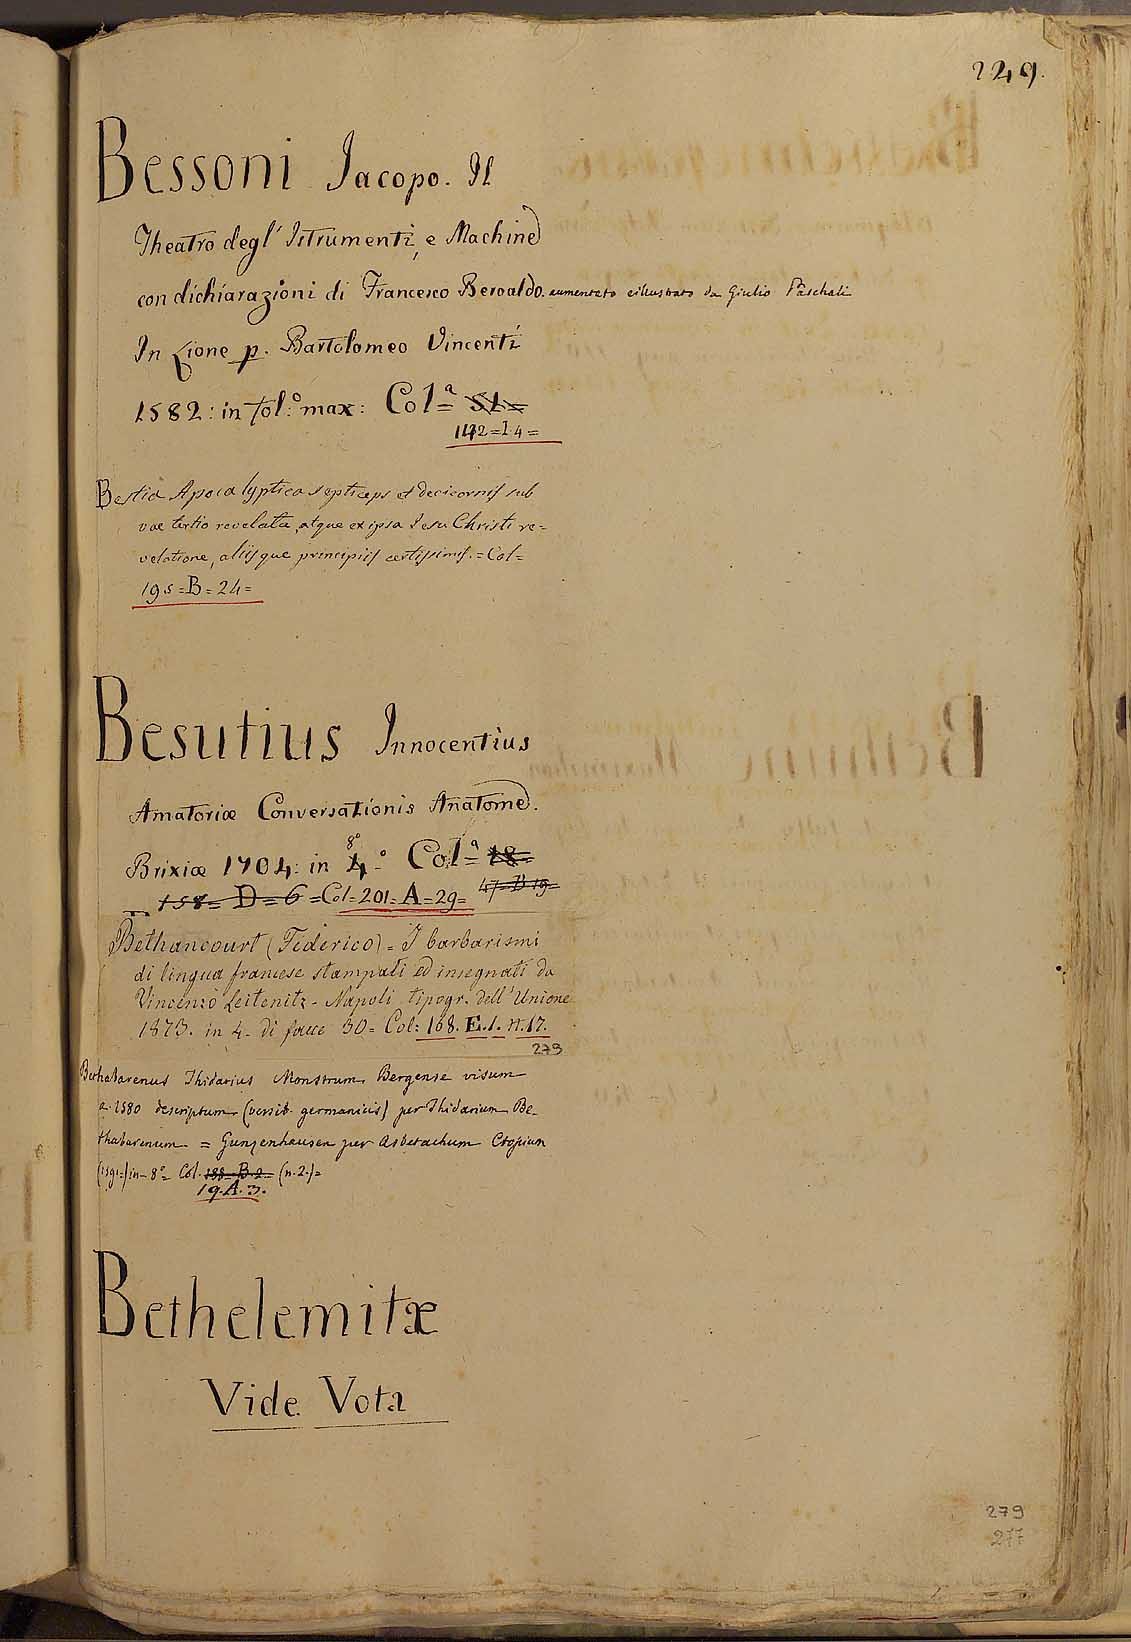 229.
Bessoni Jacopo. Il
Theatro degl' Istrumenti, e Machine
con dichiarazioni di Francesco Beroaldo. aumentato e illustrato da Giulio Paschali
In Lione p. Bartolomeo Vincenti
1582: in fol:º max: Col.ª= 51.=
1142=I.4=
Bestia Apocalyptica septiceps et decicornis sub
vae tertio revelata, atque ex ipsa Jesu Christi re=
velatione, aliisque principiis certissimis.=Col=
195=B=24=
Besutius Innocentius
Amatoriæ Conversationis Anatome.
Brixiæ 1704: in 4.º 8º Col.ª= 18=
47=B 19=
158= D=6 =Col=201=A=29=
Bethancourt (Federico) = I barbarismi
di lingua francese stampati ed insegnati da
Vincenzo Leitenitz - Napoli tipogr. dell'Unione
1873. in 4. di facce 30= Col: 168. E.1. n.17.
279
Bethabarenus Thidarius Monstrum Bergense visum
a. 1580 descriptum (versib. germanicis) per Thidarium Be-
thabarenum = Gunzenhausen per Asbetachum Ctopium
(1591=) in-8º= Col. 188=B.2= (n.2.)=
19.A.3.
Bethelemitæ
Vide Vota
279
277